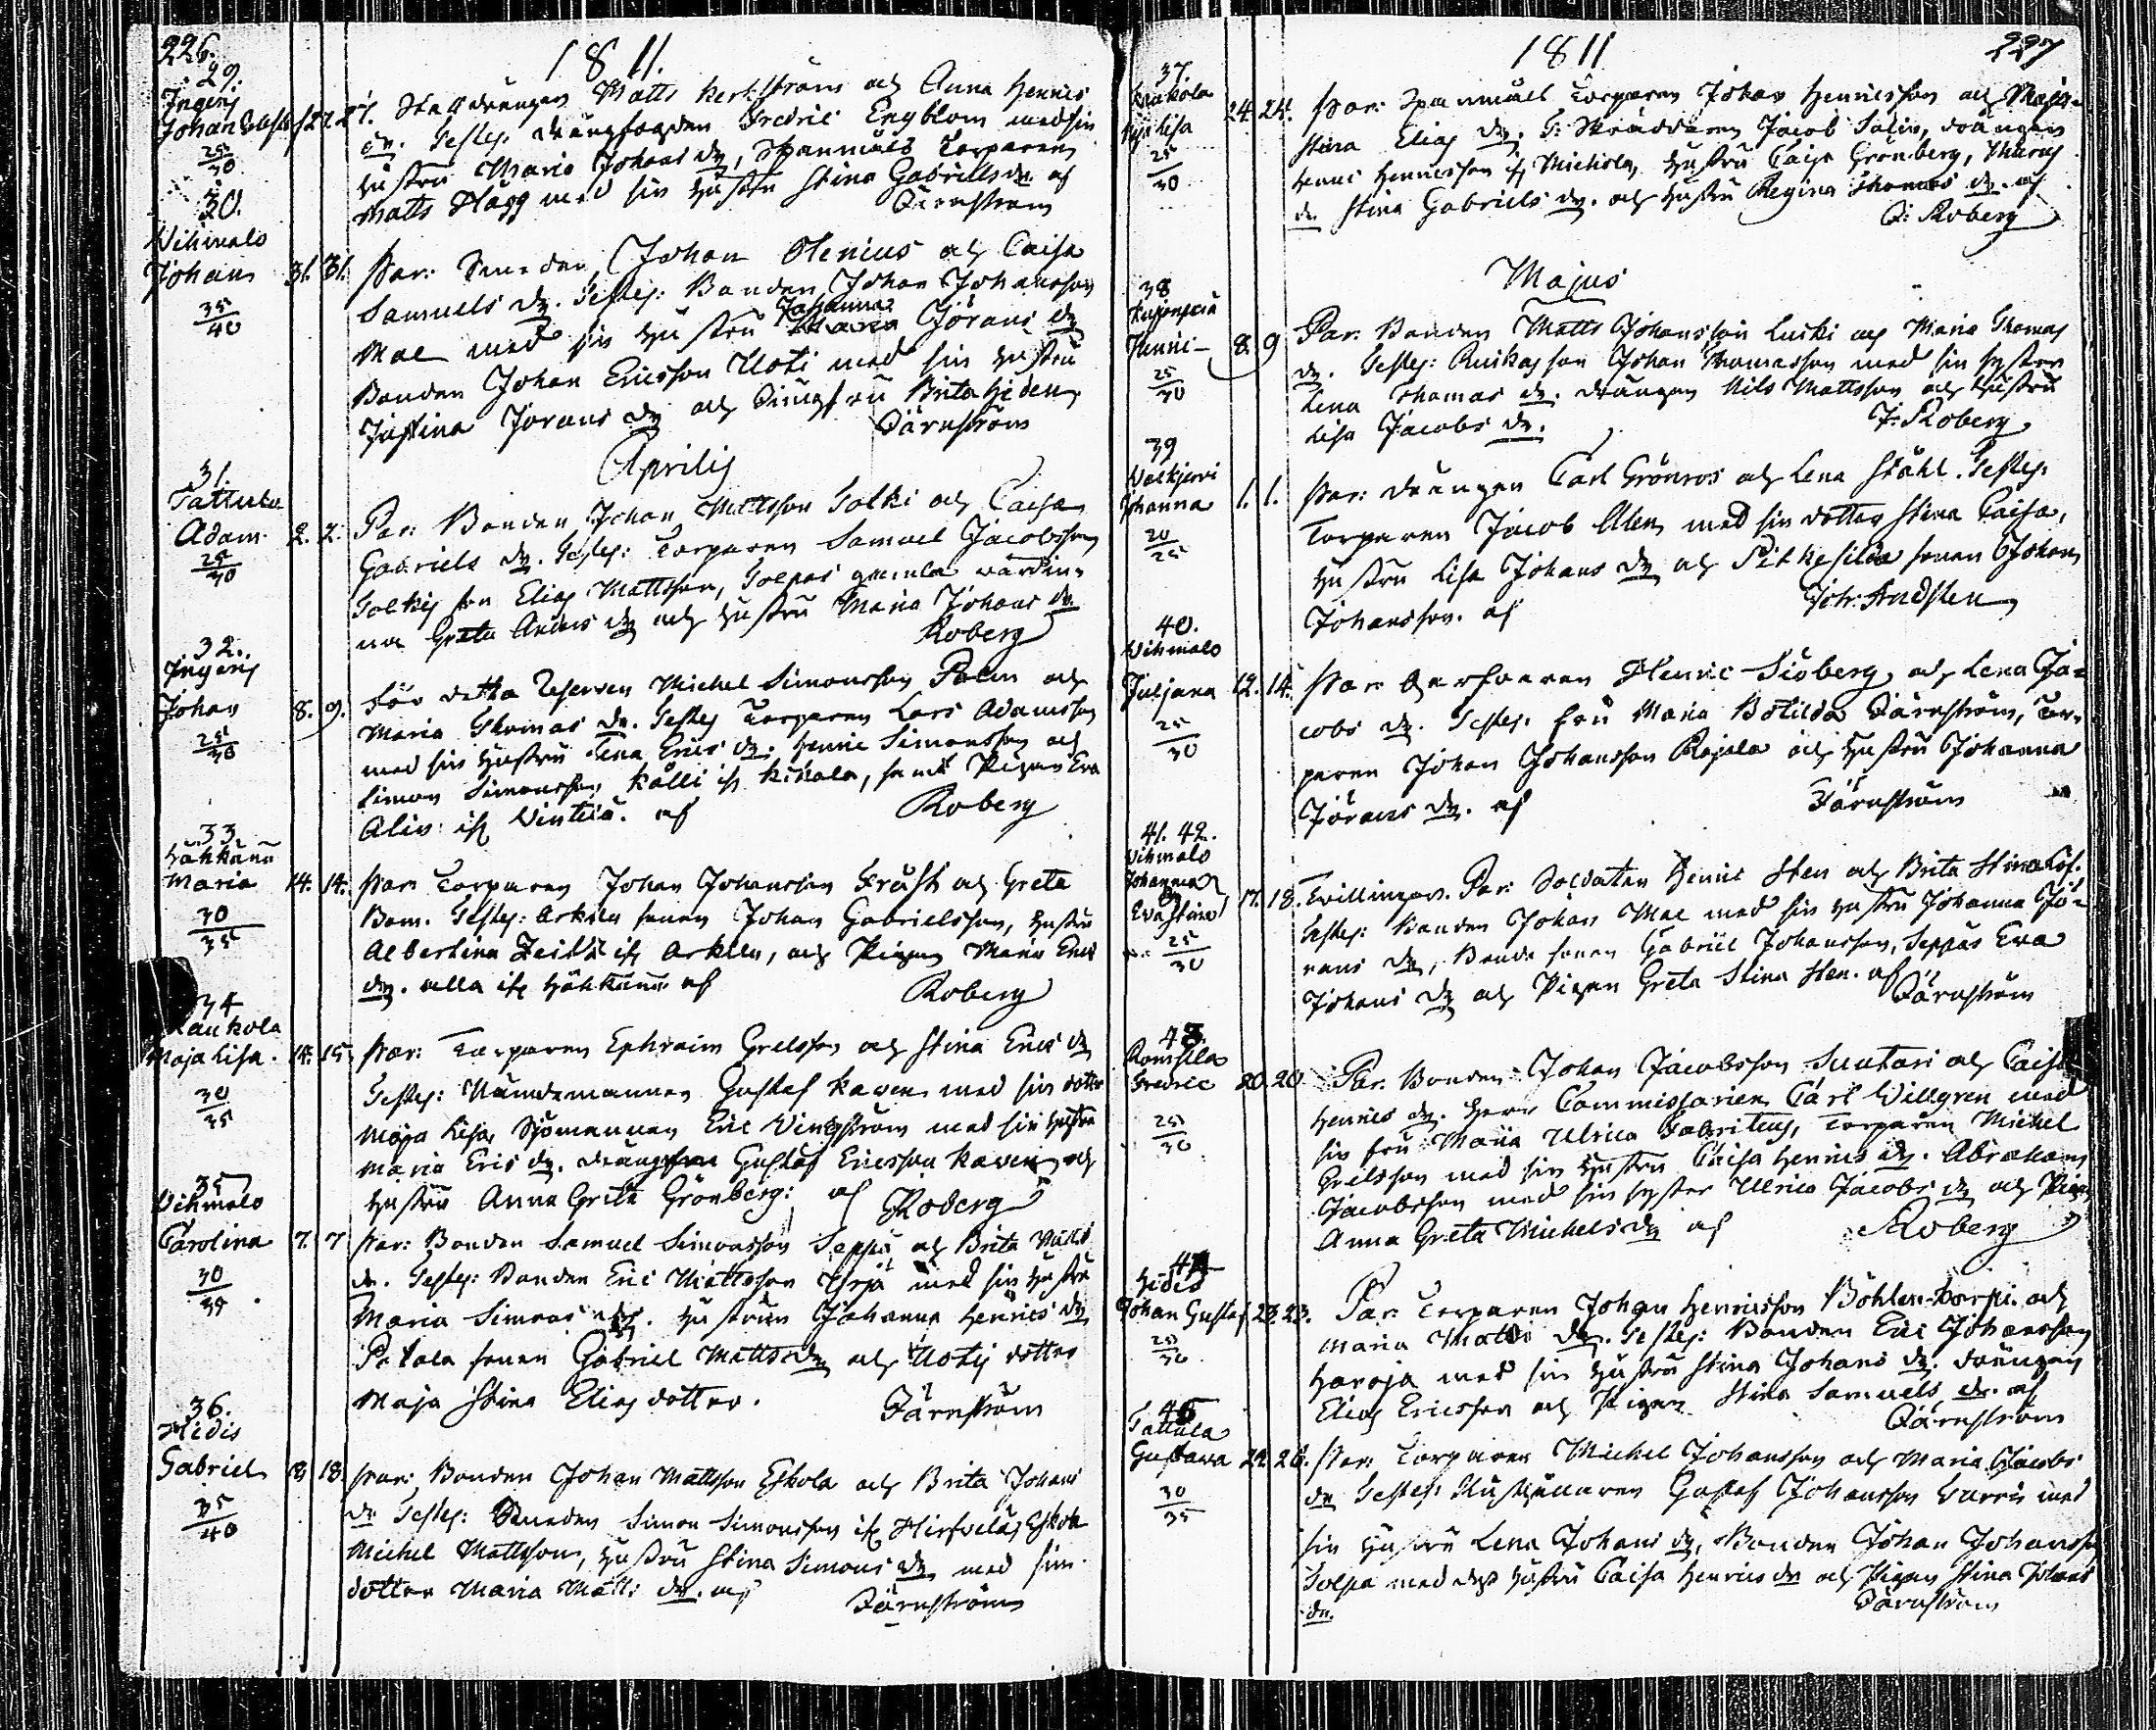 226.
1811.
29.
Ingeris
Johan Gustaf 27. 27. Stalldrängen Matts Kerkström och Anna Henrics
dr. Testes: drängfogden Fredric Engblom med sin
25/30
hustru Maria Johans dr, Spanmåls Torparen
Matts Hägg med sin hustru Stina Gabriels dr af
Färnström
30.
Wihmalo
Johan 31. 31. Par: Smeden Johan Olenius och Caisa
Samuels dr. Testes: Bonden Johan Johansson
35/40
Mal med sin hustru Johanna Jörans dr
Bonden Johan Ericsson Uoti med sin hustru
Justina Jörans dr och Jungfru Brita Heden
Färnström
Aprilis
31.
Tattula
Adam 2. 2. Par: Bonden Johan Mattsson Solki och Caisa
25/30
Gabriels dr. Testes: Torparen Samuel Jacobsson
Solkis son Elias Mattsson, Solpas gamla wärdin-
na Greta Anders dr och hustru Maria Johans dr
Roberg
32.
Ingeris
Johan 8. 9. För detta Reserven Michel Simonsson Palm och
25/30
Maria Thomas dr. Testes Torparen Lars Adamsson
med sin hustru Lena Erics dr. Henric Simonsson och
Simon Simonsson Källi if Kihala, samt Pigan Eva
Alin if Vintala. af Roberg
33.
Hähkänä
Maria 14. 14. Par: Torparen Johan Johansson Fräst och Greta
30/35
Bom. Testes: Arkila sonen Johan Gabrielsson, hustru
Albertina Zeitz if Arkila, och Pigan Maria Erics
dr. alla if Hähkänä af Roberg
34
Raukola
Maja Lisa. 14. 15. Par: Torparen Ephraim Grelsson och Stina Erics dr
30/35
Testes: Nämdemannen Gustaf Kaven med sin dotter
Maja Lisa, Sjömannen Eric Wingström med sin hustru
Maria Erics dr. Gustaf Ericsson Kaven och
hustru Anna Greta Grönberg: af Roberg
35
Wihmalo
Carolina 7. 7 Par: Bonden Samuel Simonsson Seppä och Brita Matts
30/35
dr. Testes: Bonden Eric Mattsson Yrjä med sin hustru
Maria Simons dr. hustrun Johanna Henrics dr
Petola sonen Gabriel Matts och Uotis dotter
Maja Stina Elias dotter. Färnström
36.
Hidis
Gabriel 18. Par: Bonden Johan Mattsson Eskola och Brita Johans
35/40
dr Testes: Bonden Simon Simonsson if Hirfvelä, Eskola
Michel Mattsson, hustru Stina Simons dr med sin
dotter Maria Matts dr. af Färnström
1811
227
37.
Raukola
Lisa 24. 24. Par: Spanmåls Torparen Johan Henricsson och Maja
25/30
Stina Elias dr. T: Skräddaren Jacob Salin, drängen
Henric Henricsson if Michola, hustru Caisa Grönberg,
dr Stina Gabriels dr. och hustru Regina Thomas dr. af
J: Roberg
Majus
38
Henric 8. 9 Par: Bonden Matts Johansson Luski och Maria Thomas
25/30
dr. Testes: son Johan Thomasson med sin syster
Lena Thomas dr. drängen Nils Mattsson och hustru
Lisa Jacobs dr. J: Roberg
39
Johanna 1. 1. Par: drängen Carl Grönros och Lena Ståhl. Testes:
20/25
Torparen Jacob Alen med sin dotter Stina Caisa,
hustru Lisa Johans dr och sonen Johan
Johansson. af Joh. Andsten
40.
Wihmalo
Juljana 12. 14. Par: Henric Siöberg och Lena Ja-
25/30
cobs dr. Testes: Fru Maria Botilda Färnström, Tor-
paren Johan Johansson Rajala och hustru Johanna
Jörans dr. af Färnström
41. 42.
Wihmalo
Johanna &
Eva Stina 17. 18. Twillingar. Par: Soldaten Henric Sten och Brita Stina Löf.
25/30
Testes: Bonden Johan Mal med sin hustru Johanna Jö-
rans dr, Bonde sonen Gabriel Johansson, Seppäs Eva
Johans dr och Pigan Greta Stina Sten. af Färnström
43.
Fredric 20. 20. Par: Bonden Johan Jacobsson Suutari och Caisa
25/30
Henrics dr. Herr Commissarien Carl Willgren med
sin fru Maria Ulrica Fabritius, Torparen Michel
Grelsson med sin hustru Caisa Henrics dr. Abraham
Jacobsson med sin syster Ulrica Jacobs dr och Pigan
Anna Greta Michels dr af Roberg
44
Hidis
Johan Gustaf 23. 23. Par: Torparen Johan Henricsson Böhlen-torpi och
25/30
Maria Matts dr. Testes: Bonden Eric Johansson
Haroja med sin hustru Stina Johans dr. drängen
Elias Ericsson och Pigan Stina Samuels dr. af
Färnström
45
Tattula
Gustava 24. 26. Par: Torparen Michel Johansson och Maria Jacobs
30/35
dr Testes: Gustaf Johansson med
sin hustru Lena Johans dr, Bonden Johan Johansson
Solpa med dess hustru Caisa Henrics dr och Pigan Stina Johans
dr. Färnström